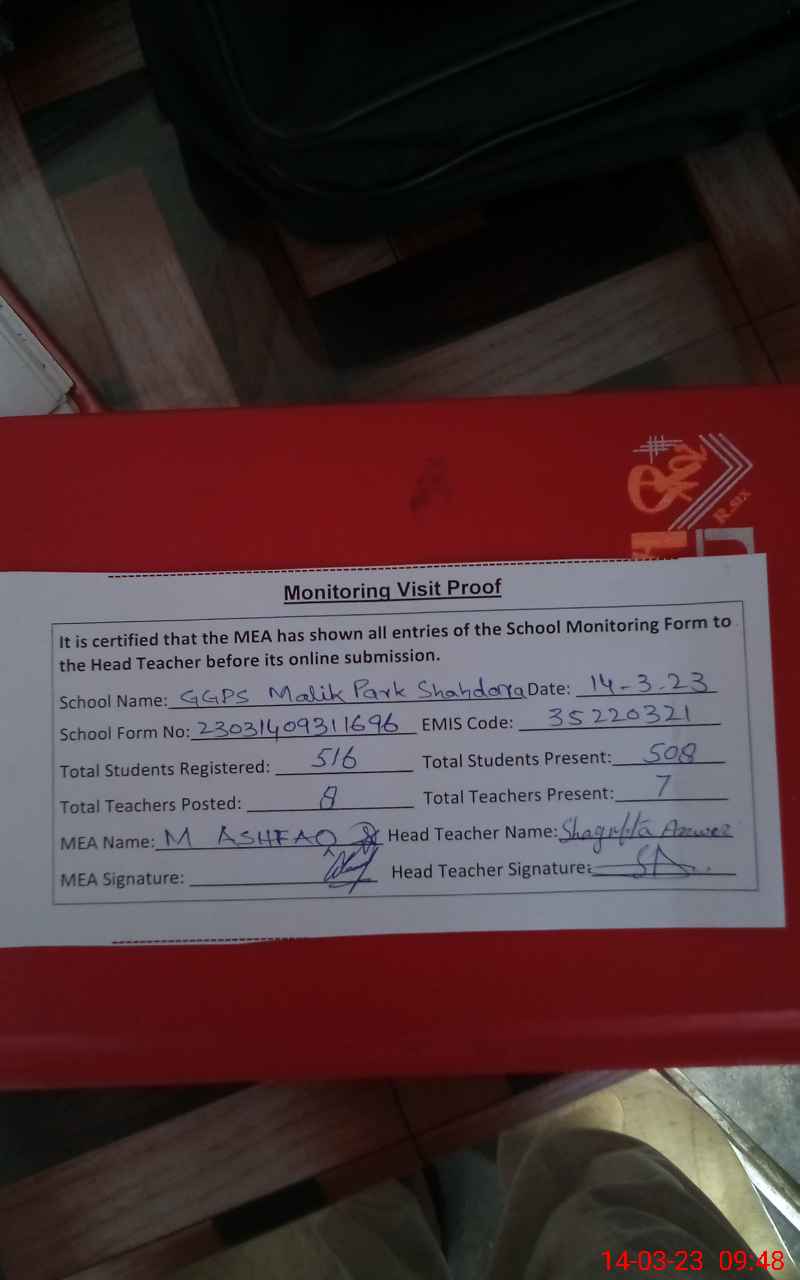 R.SIX
Monitoring Visit Proof
It is certified that the MEA has shown all entries of the School Monitoring Form to
the Head Teacher before its online submission.
School Name: GGPS Malik Park Shahdara Date: 14-3-23
School Form No: 23031409311696 EMIS Code: 35220321
Total Students Registered: 516 Total Students Present: 508
Total Teachers Posted: 8 Total Teachers Present: 7
MEA Name: M ASHFAQ Head Teacher Name: Shagufta
MEA Signature: Head Teacher Signature:
14-03-23 09:48